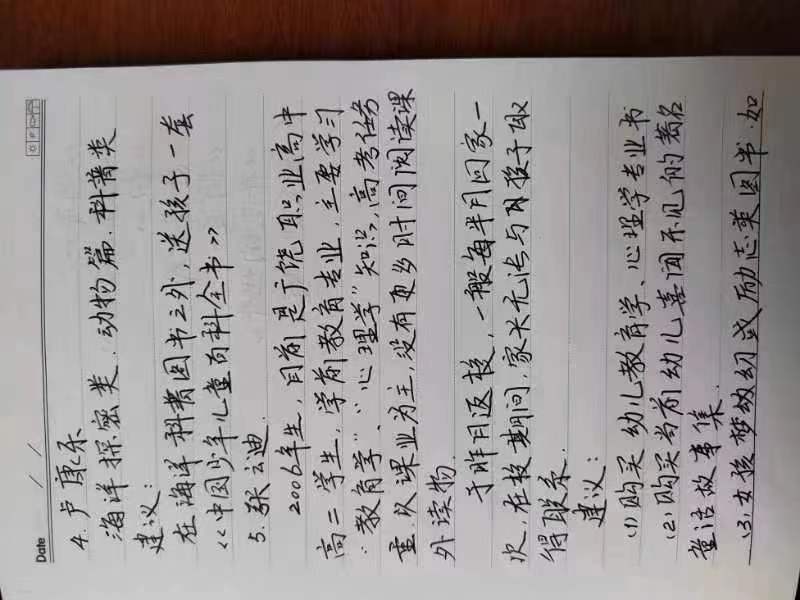 Date
4. 卢康乐
海洋探密类、动物篇、科普类
建议：
在海洋科普图书之外，送孩子一套
《中国少年儿童百科全书》
5. 张云迪
2006年生，目前是广饶职业高中
高二学生，学前教育专业，主要学习
“教育学”、“心理学”知识，高考任务
重，以课业为主，没有更多时间阅读课
外读物。
于昨日返校，一般每半月回家一
次，在校期间，家长无法与孩子取
得联系。
建议：
(1) 购买幼儿教育学、心理学专业书
(2) 购买当前幼儿喜闻乐见的著名
童话故事集
(3) 女孩梦幻或励志类图书，如